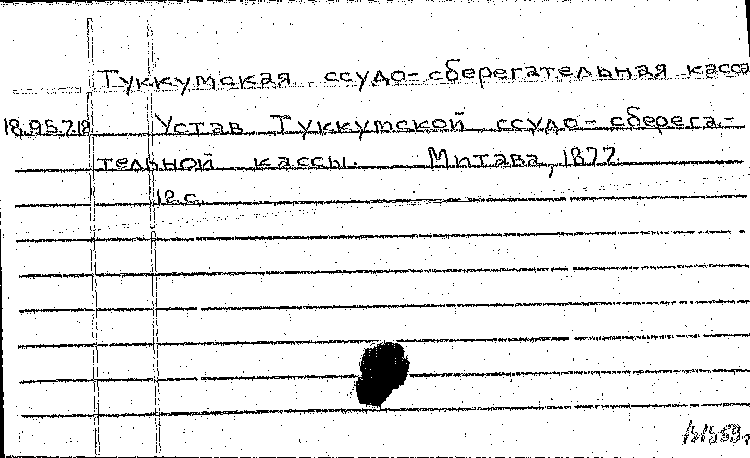 Туккумская ссудо-сберегательная касса
18.95.7.18 Устав Туккумской ссудо-сберега-
тельной кассы. Митава, 1877
12 с.